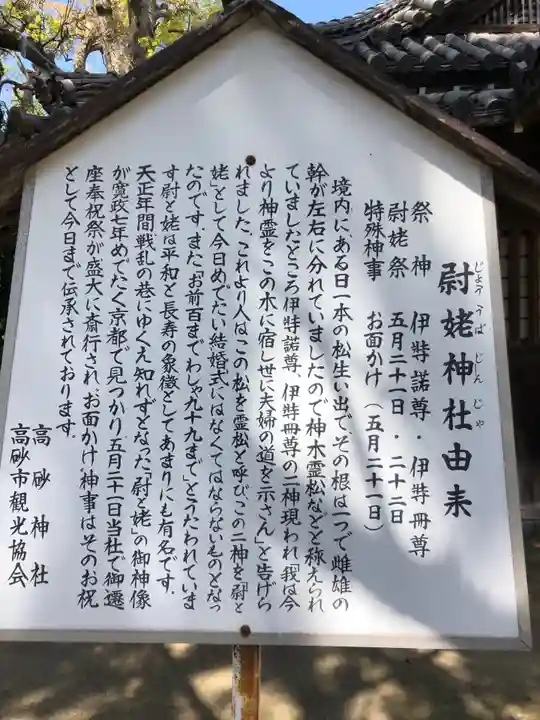 尉姥神社由来
じょう うば じん じゃ
祭神 伊弉諾尊・伊弉冊尊
尉姥祭 五月二十一日・二十二日
特殊神事 お面かけ(五月二十一日)
境内にある日一本の松生い出で、その根は一つで雌雄の
幹が左右に分れていましたので神木霊松などと称えられ
ていましたところ伊弉諾尊、伊弉冊尊の二神現われ「我は今
より神霊をこの木に宿し世に夫婦の道を示さん」と告げら
れました。これより人はこの松を霊松と呼びこの二神を「尉と
姥」として今日めでたい結婚式にはなくてはならないものとなっ
たのです。また「お前百までわしゃ九十九まで」とうたわれていま
す尉と姥は平和と長寿の象徴としてあまりにも有名です。
天正年間戦乱の巷にゆくえ知れずとなった「尉と姥」の御神像
が寛政七年めでたく京都で見つかり五月二十一日当社で御遷
座奉祝祭が盛大に斎行され、お面かけ神事はそのお祝
として今日まで伝承されております。
高砂神社
高砂市観光協会